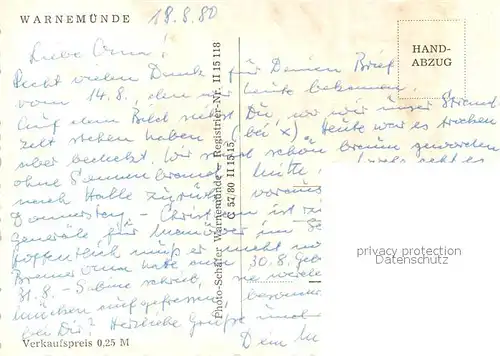 WARNEMÜNDE
18.8.80
HAND-
ABZUG
Liebe Oma!
Recht vielen Dank für Deinen Brief
vom 14.8., den wir heute bekamen.
Auf dem Bild siehst Du, wo wir unser Strand-
zelt stehen haben (bei x). Heute war es trocken
aber bedeckt. Wir sind schön braun geworden
ohne Sonnenbrand.
nach Halle zurück, voraus
Donnerstag – Christian ist
für Manöver im
hoffentlich muß er nicht
Bremer Oma hat am 30.8. Geb
31.8. – Sabine schreibt, sie werde
Mücken aufgefressen,
bei Dir? Herzliche Grüße und
Dein
Photo-Schäfer Warnemünde – Registrier-Nr. II 15 118
C 57/80 II 15 15
Verkaufspreis 0,25 M
privacy protection
Datenschutz